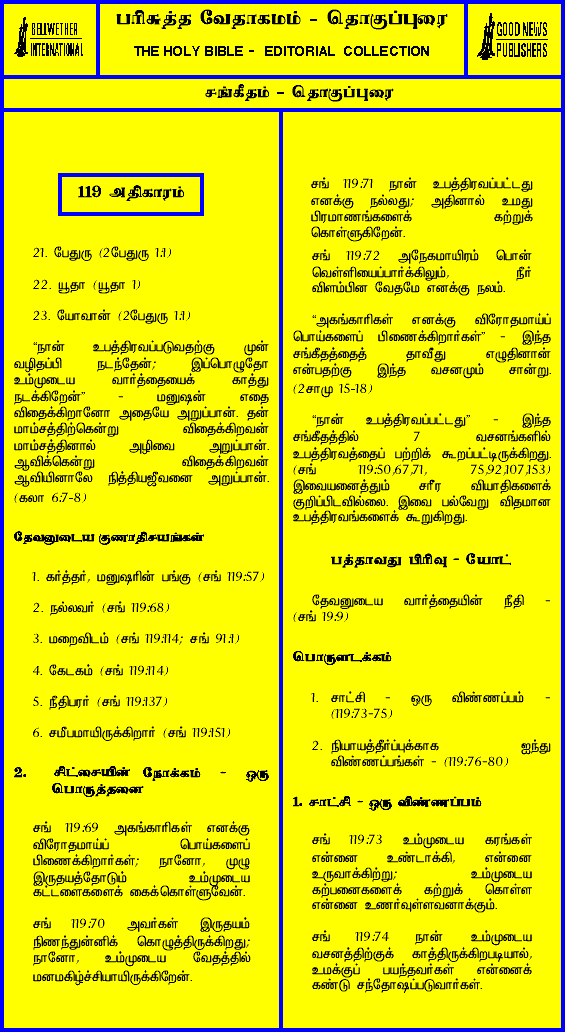 BELLWETHER
INTERNATIONAL
பரிசுத்த வேதாகமம் - தொகுப்புரை
THE HOLY BIBLE - EDITORIAL COLLECTION
GOOD NEWS
PUBLISHERS
சங்கீதம் - தொகுப்புரை
119 அதிகாரம்
21. பேதுரு (2பேதுரு 1:1)
22. யூதா (யூதா 1)
23. யோவான் (2பேதுரு 1:1)
“நான் உபத்திரவப்படுவதற்கு முன்
வழிதப்பி நடந்தேன்; இப்பொழுதோ
உம்முடைய வார்த்தையைக் காத்து
நடக்கிறேன்” - மனுஷன் எதை
விதைக்கிறானோ அதையே அறுப்பான். தன்
மாம்சத்திற்கென்று விதைக்கிறவன்
மாம்சத்தினால் அழிவை அறுப்பான்.
ஆவிக்கென்று விதைக்கிறவன்
ஆவியினாலே நித்தியஜீவனை அறுப்பான்.
(கலா 6:7-8)
தேவனுடைய குணாதிசயங்கள்
1. கர்த்தர், மனுஷரின் பங்கு (சங் 119:57)
2. நல்லவர் (சங் 119:68)
3. மறைவிடம் (சங் 119:114; சங் 91:1)
4. கேடகம் (சங் 119:114)
5. நீதிபரர் (சங் 119:137)
6. சமீபமாயிருக்கிறார் (சங் 119:151)
2. சிட்சையின் நோக்கம் - ஒரு
பொருத்தனை
சங் 119:69 அகங்காரிகள் எனக்கு
விரோதமாய்ப் பொய்களைப்
பிணைக்கிறார்கள்; நானோ, முழு
இருதயத்தோடும் உம்முடைய
கட்டளைகளைக் கைக்கொள்ளுவேன்.
சங் 119:70 அவர்கள் இருதயம்
நிணந்துன்னிக் கொழுத்திருக்கிறது;
நானோ, உம்முடைய வேதத்தில்
மனமகிழ்ச்சியாயிருக்கிறேன்.
சங் 119:71 நான் உபத்திரவப்பட்டது
எனக்கு நல்லது; அதினால் உமது
பிரமாணங்களைக் கற்றுக்
கொள்ளுகிறேன்.
சங் 119:72 அநேகமாயிரம் பொன்
வெள்ளியைப்பார்க்கிலும், நீர்
விளம்பின வேதமே எனக்கு நலம்.
“அகங்காரிகள் எனக்கு விரோதமாய்ப்
பொய்களைப் பிணைக்கிறார்கள்” - இந்த
சங்கீதத்தைத் தாவீது எழுதினான்
என்பதற்கு இந்த வசனமும் சான்று.
(2சாமு 15-18)
“நான் உபத்திரவப்பட்டது” - இந்த
சங்கீதத்தில் 7 வசனங்களில்
உபத்திரவத்தைப் பற்றிக் கூறப்பட்டிருக்கிறது.
(சங் 119:50,67,71, 75,92,107,153)
இவையனைத்தும் சரீர வியாதிகளைக்
குறிப்பிடவில்லை. இவை பல்வேறு விதமான
உபத்திரவங்களைக் கூறுகிறது.
பத்தாவது பிரிவு - யோட்
தேவனுடைய வார்த்தையின் நீதி -
(சங் 19:9)
பொருளடக்கம்
1. சாட்சி - ஒரு விண்ணப்பம் -
(119:73-75)
2. நியாயத்தீர்ப்புக்காக ஐந்து
விண்ணப்பங்கள் - (119:76-80)
1. சாட்சி - ஒரு விண்ணப்பம்
சங் 119:73 உம்முடைய கரங்கள்
என்னை உண்டாக்கி, என்னை
உருவாக்கிற்று; உம்முடைய
கற்பனைகளைக் கற்றுக் கொள்ள
என்னை உணர்வுள்ளவனாக்கும்.
சங் 119:74 நான் உம்முடைய
வசனத்திற்குக் காத்திருக்கிறபடியால்,
உமக்குப் பயந்தவர்கள் என்னைக்
கண்டு சந்தோஷப்படுவார்கள்.